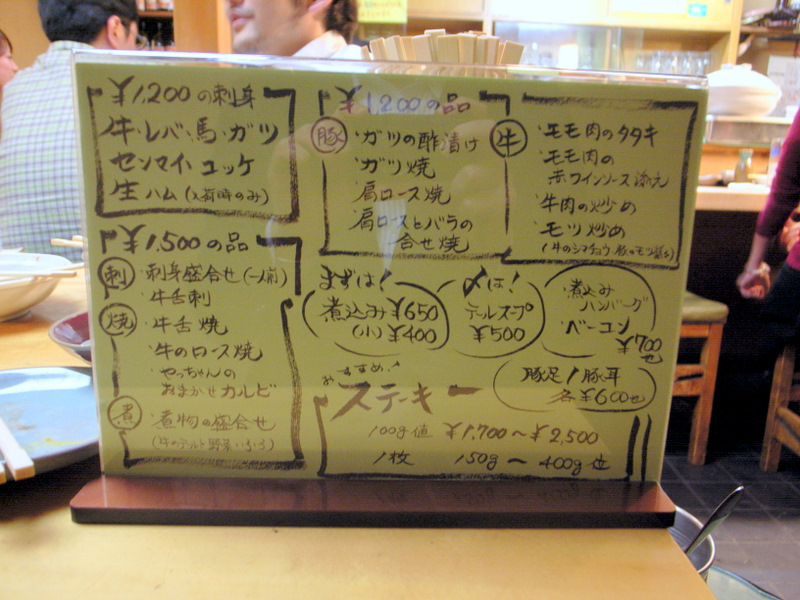 ¥1,200の刺身
牛・レバ・馬・ガツ
センマイ・ユッケ
生ハム(入荷時のみ)
¥1,500の品
刺
・刺身盛合せ(一人前)
・牛舌刺
焼
・牛舌焼
・牛のロース焼
・やっちゃんの
おまかせカルビ
煮
・煮物の盛合せ
(牛のテールと野菜いろいろ)
¥1,200の品
豚
・ガツの酢漬け
・ガツ焼
・肩ロース焼
・肩ロースとバラの
合せ焼
牛
・モモ肉のタタキ
・モモ肉の
赤ワインソース添え
・牛肉の炒め
・モツ炒め
(牛のシマチョウ・豚のモツ
まずは!
煮込み¥650
(小)¥400
〆は!
テールスープ
¥500
・煮込み
ハンバーグ
・ベーコン
¥700也
豚足/豚耳
各¥600也
おすすめ!
ステーキ
100g値 ¥1,700〜¥2,500
1枚 150g〜400g位